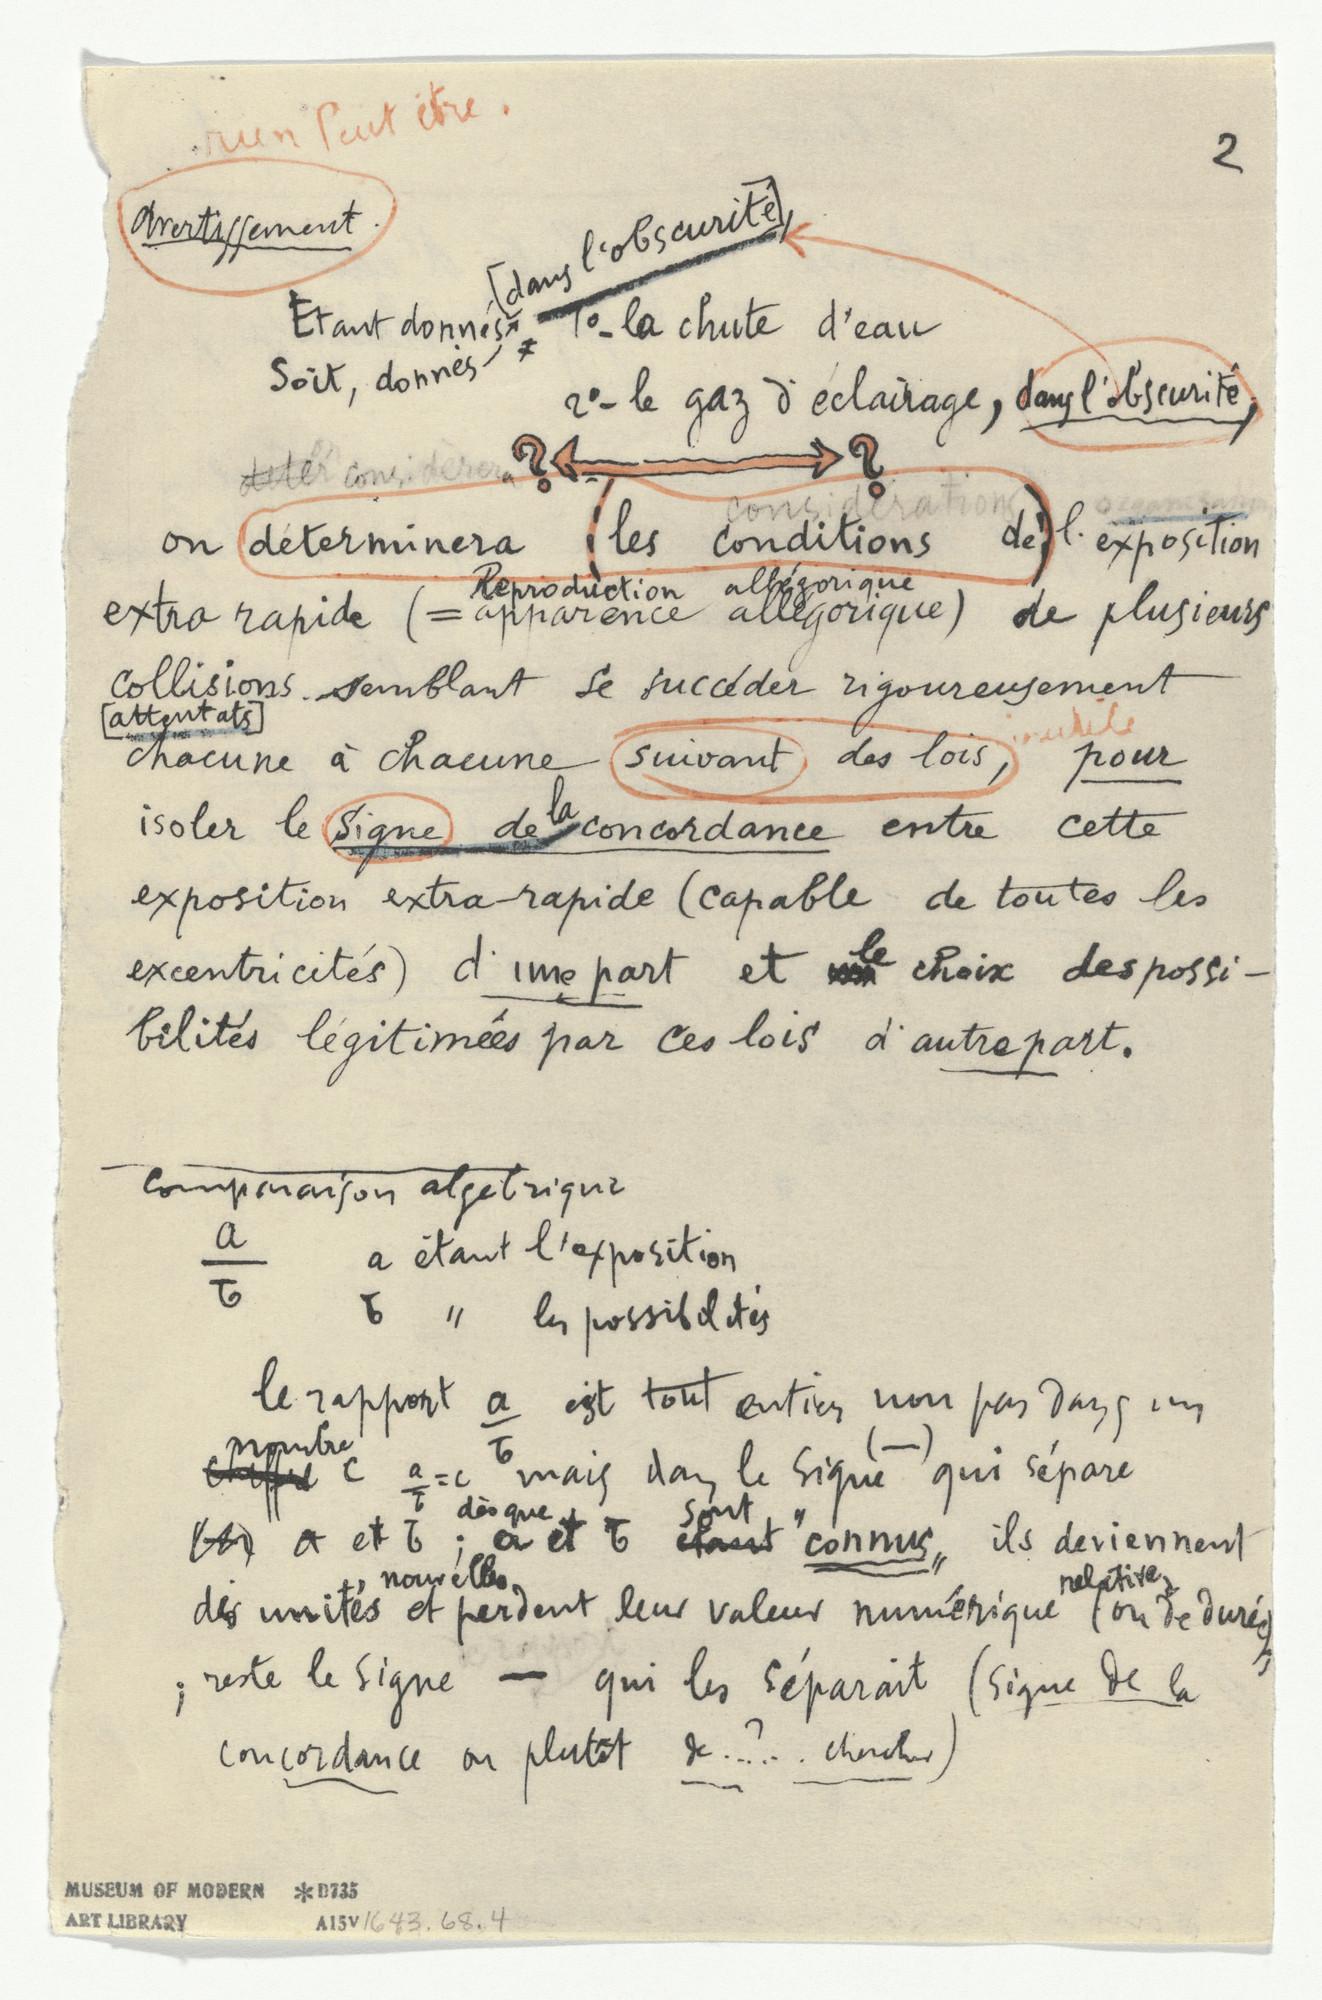 rien Peut être.
2
avertissement.
[dans l'obscurité],
Etant donnés 1º- la chute d'eau
Soit, donnés
2º- le gaz d'éclairage, dans l'obscurité,
? ?
considérera
considérations
on déterminera les conditions de l'exposition
Reproduction allégorique
extra rapide (= apparence allégorique) de plusieurs
collisions semblant se succéder rigoureusement
[attentats]
chacune à chacune suivant des lois, inutile pour
isoler le Signe de la concordance entre cette
exposition extra-rapide (capable de toutes les
excentricités) d'une part et le choix des possi-
bilités légitimées par ces lois d'autre part.
Comparaison algébrique
a
b
a étant l'exposition
b " les possibilités
le rapport a/b est tout entier non pas dans un
nombre
chiffre c a/b = c mais dans le Signe (—) qui sépare
a et b ; dès que a et b étant sont "connus" ils deviennent
des unités nouvelles et perdent leur valeur numérique relative (ou de durée)
; reste le signe — qui les séparait (signe de la
concordance ou plutôt de ...?... chercher)
MUSEUM OF MODERN ART LIBRARY
*D735
A15V 1643.68.4